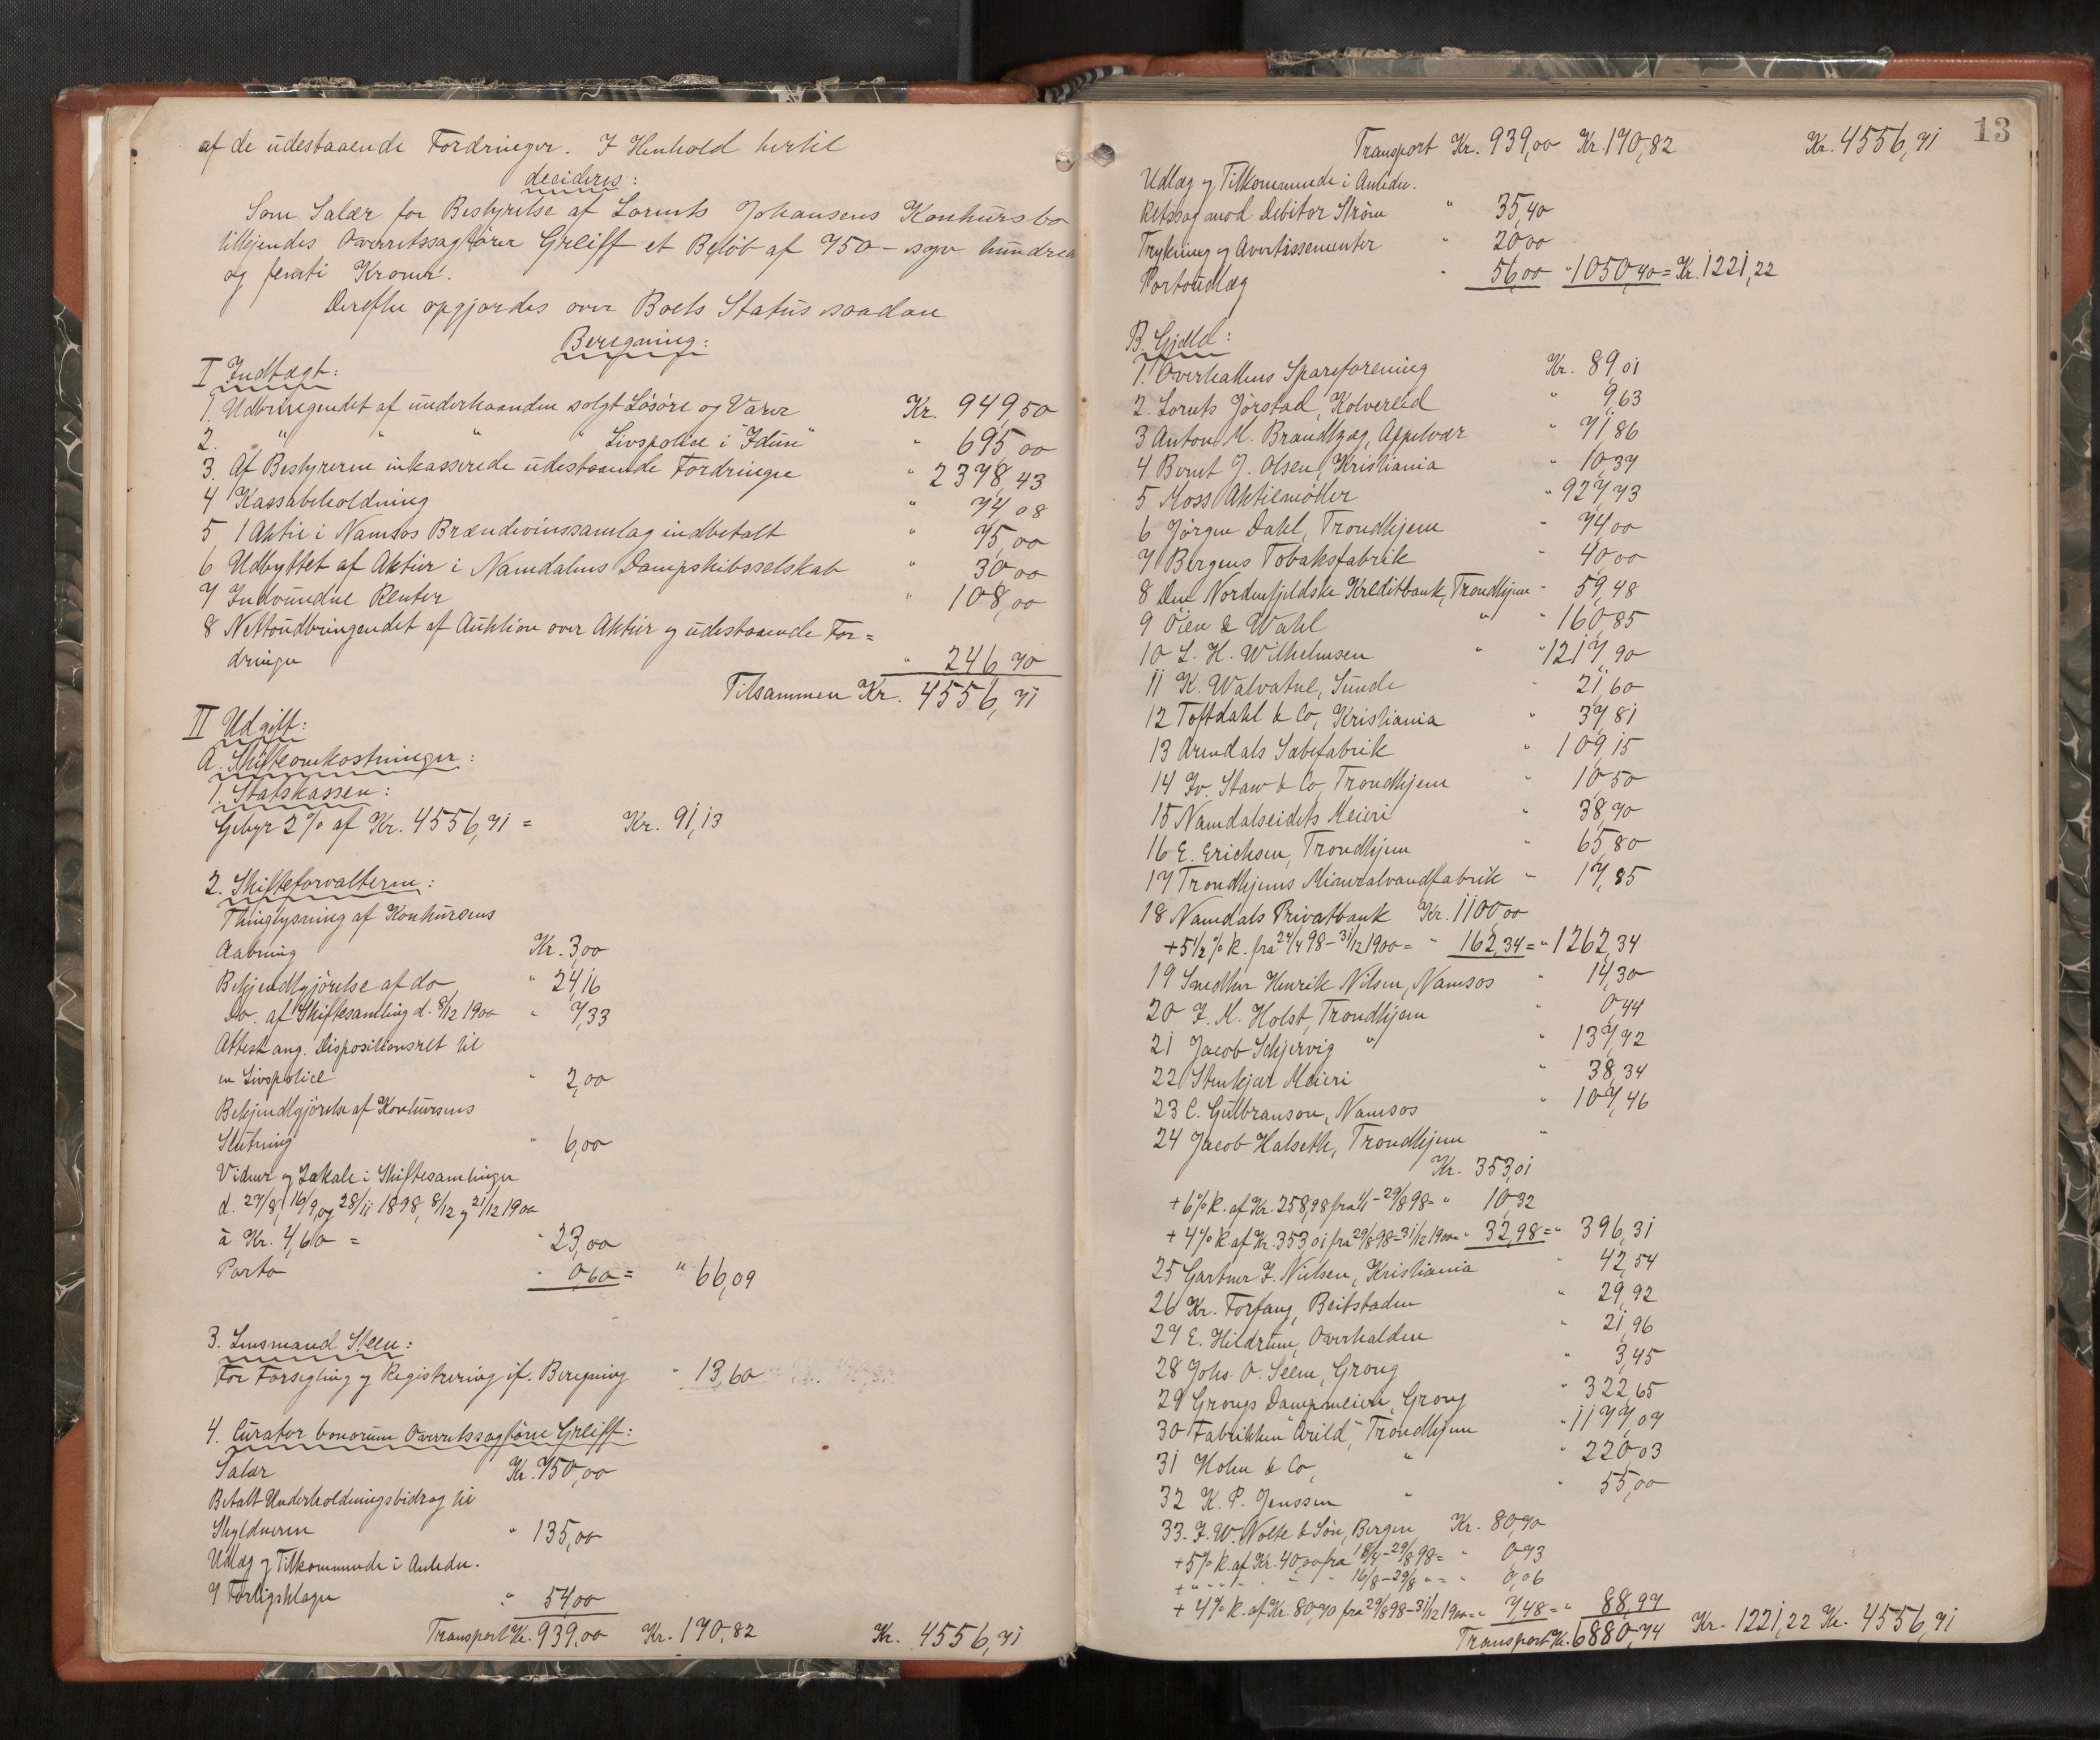 af de udestaaende Fordringer. I Henhold hertil
decideres:
Som Salær for Bestyrelse af Lornts Johansens Konkursbo
tilkjendes Overretssagfører Greiff et Beløb af 750 – syv hundrede
og femti Kroner.
Derefter opgjordes over Boets Status saadan
Beregning:
I Indtægt:
1. Udbringendet af underhaanden solgt Løsøre og Varer Kr. 949,50
2. " " " " Livspolice i "Idun" " 695,00
3. Af Bestyreren inkasserede udestaaende Fordringer " 2378,43
4 Kassabeholdning " 74,08
5 1 Aktie i Namsos Brændevinssamlag indbetalt " 75,00
6 Udbyttet af Aktier i Namdalens Dampskibsselskab " 30,00
7 Indvundne Renter " 108,00
8 Nettoudbringendet af Auktion over Aktier og udestaaende For=
dringer " 246,70
Tilsammen Kr. 4556,71
II Udgift:
A. Skifteomkostninger:
1. Statskassen:
Gebyr 2 % af Kr. 4556,71 = Kr. 91,13
2. Skifteforvalteren:
Thinglysning af Konkursens
Aabning Kr. 3,00
Bekjendtgjørelse af do " 24,16
Do. af Skiftesamling d. 8/12 1900 " 7,33
Attest ang. Dispositionsret til
en Livspolice " 2,00
Bekjendtgjørelse af Konkursens
Slutning " 6,00
Vidner og Lokale i Skiftesamlinger
d. 27/8, 16/9 og 28/11 1898, 8/12 og 21/12 1900
à Kr. 4,60 = " 23,00
Porto " 0,60 = " 66,09
3. Lensmand Steen:
For Forsegling og Registrering if. Beregning " 13,60
4. Curator bonorum Overretssagfører Greiff:
Salær Kr. 750,00
Betalt Underholdningsbidrag til
Skyldneren " 135,00
Udlæg og Tilkommende i Anledn.
7 Forligsklager " 54,00
Transport Kr. 939,00 Kr. 170,82 Kr. 4556,71
13
Transport Kr. 939,00 Kr. 170,82 Kr. 4556,71
Udlæg og Tilkommende i Anledn.
Retssag mod Debitor Strøm " 35,40
Trykning og Avertissementer " 20,00
Portoudlæg " 56,00 " 1050,40 = Kr. 1221,22
B. Gjeld:
1. Overhallens Spareforening Kr. 89,01
2. Lornts Jørstad, Kolvereid " 9,63
3 Anton M. Brandtzæg, Appelvær " 71,86
4 Bernt J. Olsen, Kristiania " 10,37
5 Moss Aktiemøller " 927,73
6 Jørgen Dahl, Trondhjem " 74,00
7 Bergens Tobaksfabrik " 40,00
8 Den Nordenfjeldske Kreditbank, Trondhjem " 59,48
9 Øien & Wahl " " 160,85
10 L. H. Wilhelmsen " " 1217,90
11 K. Walvatne, Sunde " 21,60
12 Toftdahl & Co, Kristiania " 37,81
13 Arendals Sæbefabrik " 109,15
14 Iv. Staw & Co, Trondhjem " 10,50
15 Namdalseidets Meieri " 38,70
16 E. Erichsen, Trondhjem " 65,80
17 Trondhjems Mineralvandfabrik " 17,85
18 Namdals Privatbank Kr. 1100,00
+ 5 1/2 % R. fra 24/4 98 – 31/12 1900 = " 162,34 = " 1262,34
19 Snedker Henrik Nilsen, Namsos " 14,30
20 I. M. Holst, Trondhjem " 0,44
21 Jacob Schjervig " " 137,92
22 Stenkjær Meieri " 38,34
23 C. Gulbranson, Namsos " 107,46
24 Jacob Halseth, Trondhjem "
Kr. 353,01
+ 6 % R. af Kr. 258,98 fra 1/1 – 29/8 98 = " 10,32
+ 4 % R. af Kr. 353,01 fra 29/8 98 – 31/12 1900 = " 32,98 = " 396,31
25 Gartner F. Nielsen, Kristiania " 42,54
26 Kr. Forfang, Beitstaden " 29,92
27 E. Hildrum, Overhalden " 21,96
28 Johs. O. Seem, Grong " 3,45
29 Grongs Dampmeieri, Grong " 322,65
30 Fabrikken "Arild", Trondhjem " 1177,07
31 Holm & Co, " " 220,03
32 K. P. Jenssen " " 55,00
33. F. W. Nolte & Søn, Bergen Kr. 80,70
+ 5 % R. af Kr. 40,00 fra 18/4 – 29/8 98 = " 0,73
+ " " " " " 16/8 – 29/8 " = " 0,06
+ 4 % R. af Kr. 80,70 fra 29/8 98 – 31/12 1900 = " 7,48 = " 88,97
Transport Kr. 6880,74 Kr. 1221,22 Kr. 4556,71